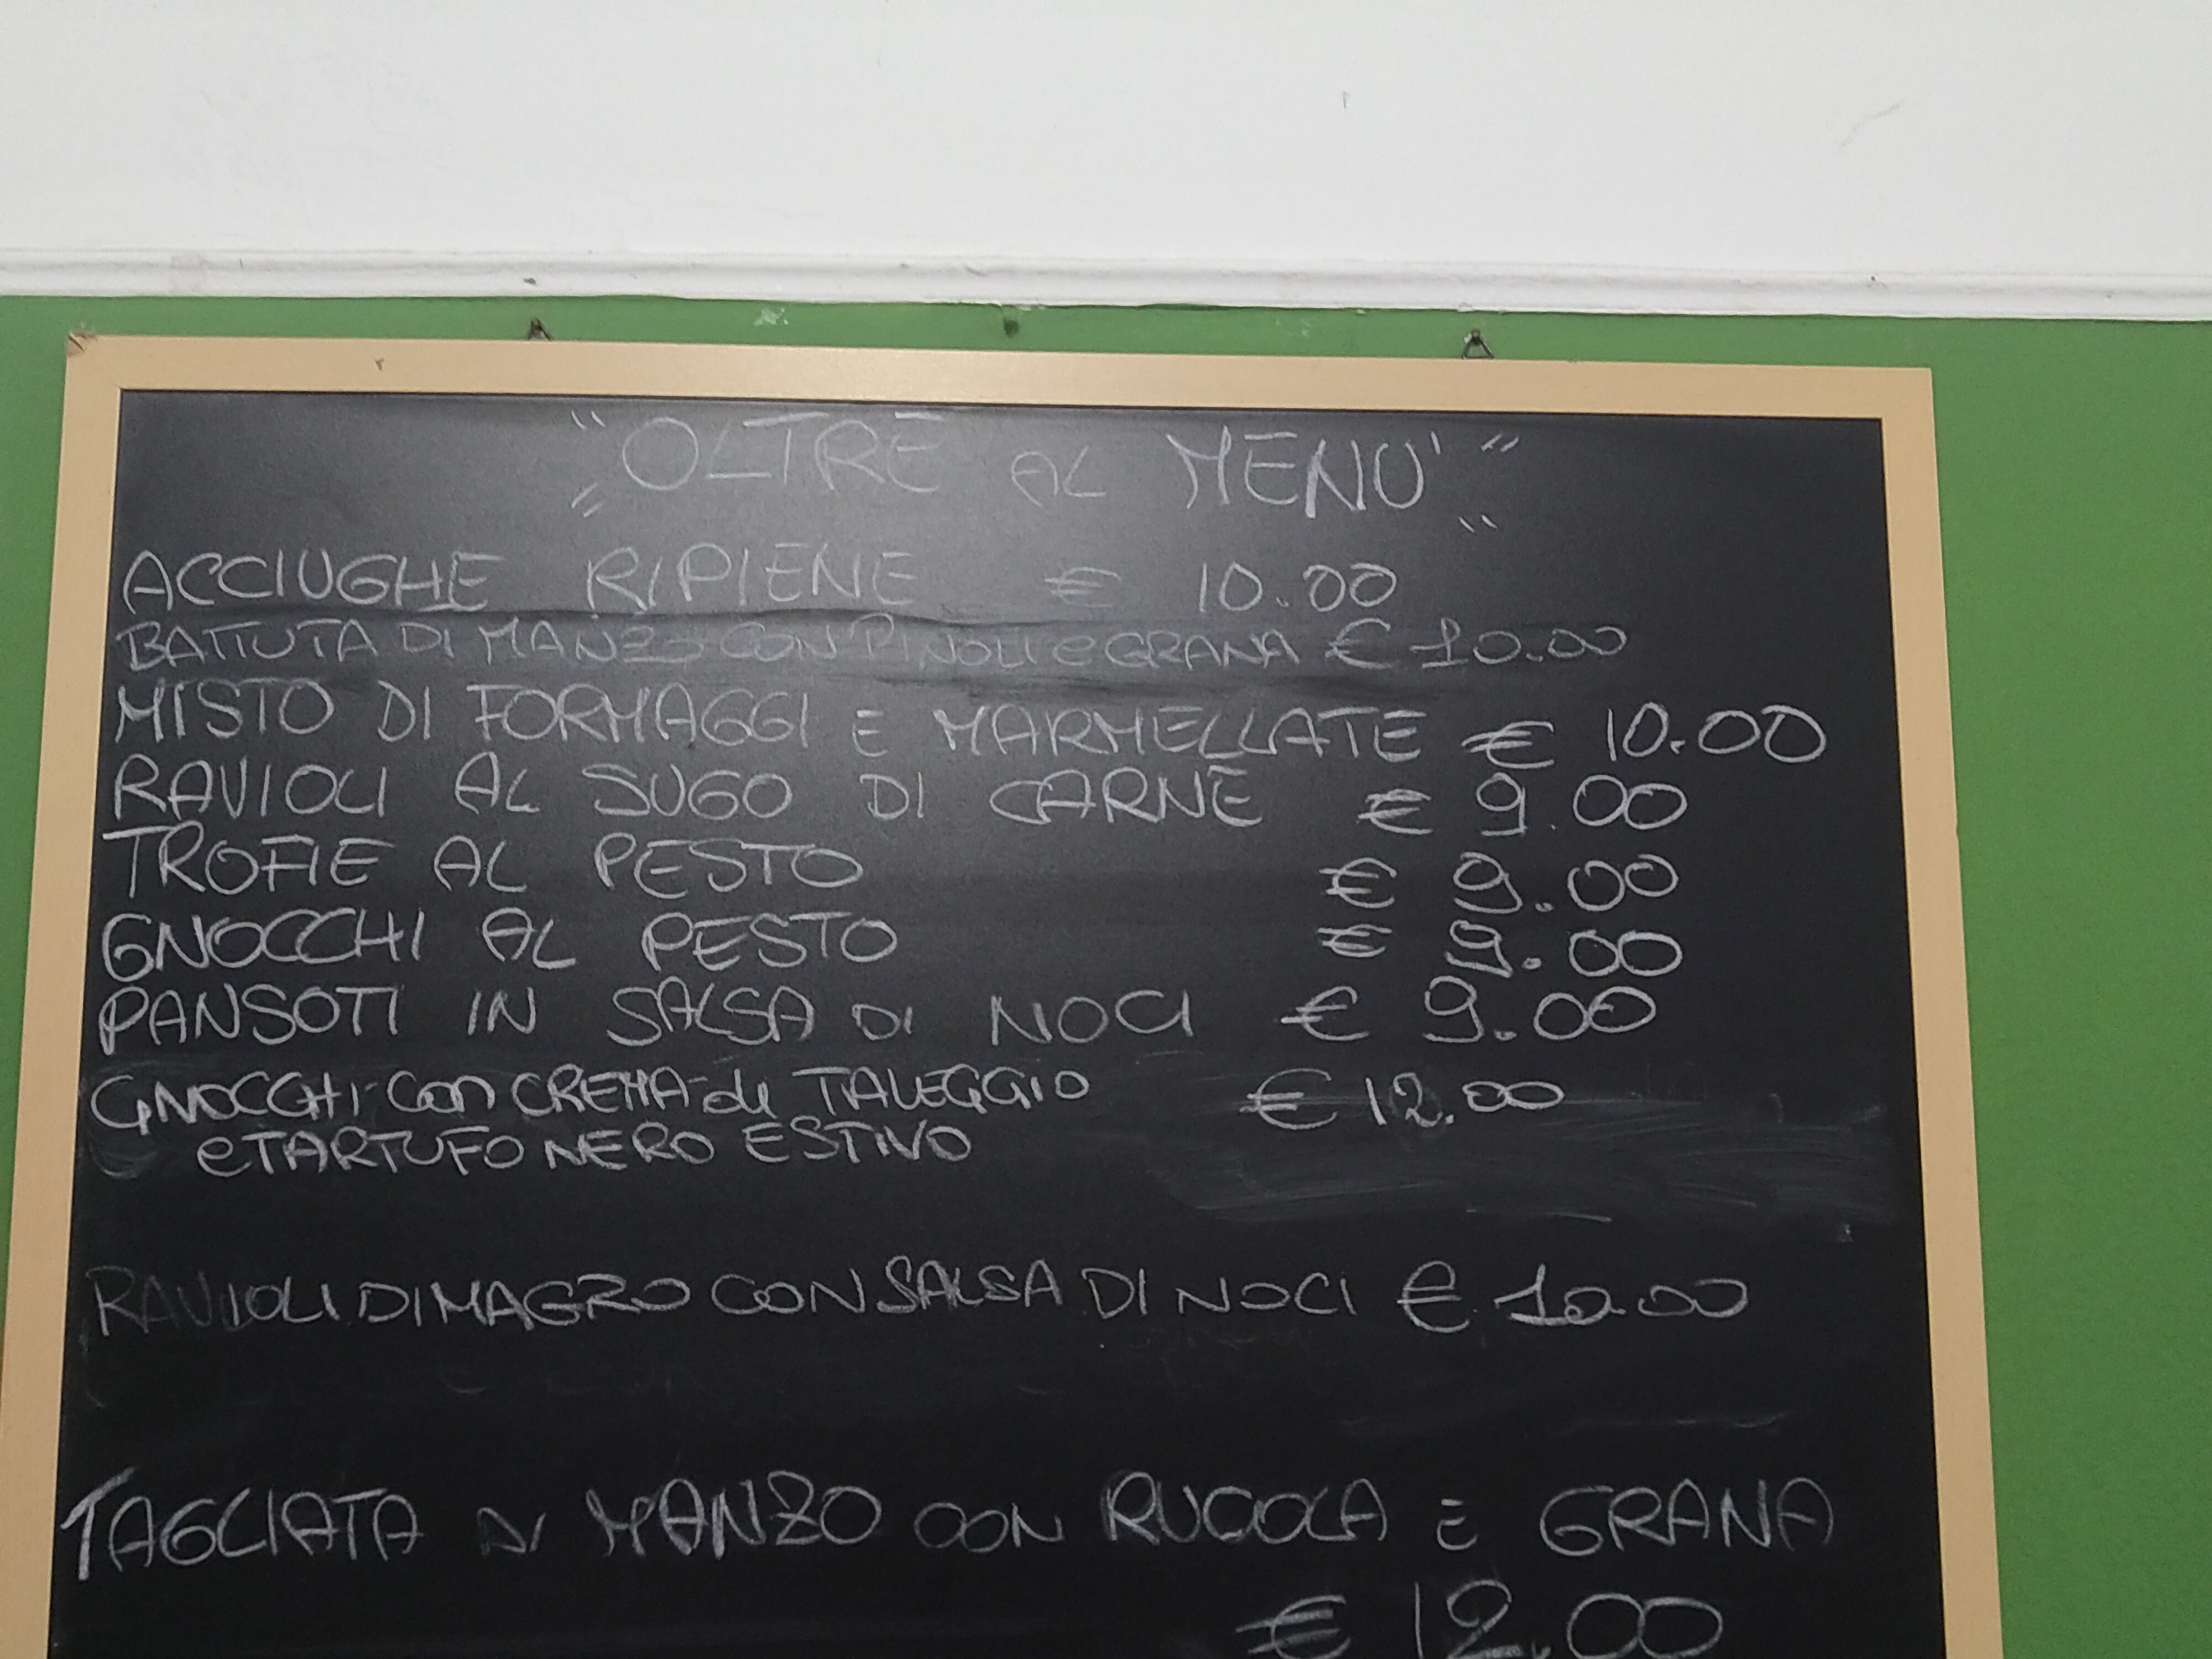 "OLTRE AL MENU'"
ACCIUGHE RIPIENE € 10.00
BATTUTA DI MANZO CON PINOLI e GRANA € 10.00
MISTO DI FORMAGGI E MARMELLATE € 10.00
RAVIOLI AL SUGO DI CARNE € 9.00
TROFIE AL PESTO € 9.00
GNOCCHI AL PESTO € 9.00
PANSOTI IN SALSA DI NOCI € 9.00
GNOCCHI con CREMA di TALEGGIO € 12.00
e TARTUFO NERO ESTIVO
RAVIOLI DI MAGRO CON SALSA DI NOCI € 10.00
TAGLIATA DI MANZO CON RUCOLA E GRANA
€ 12.00